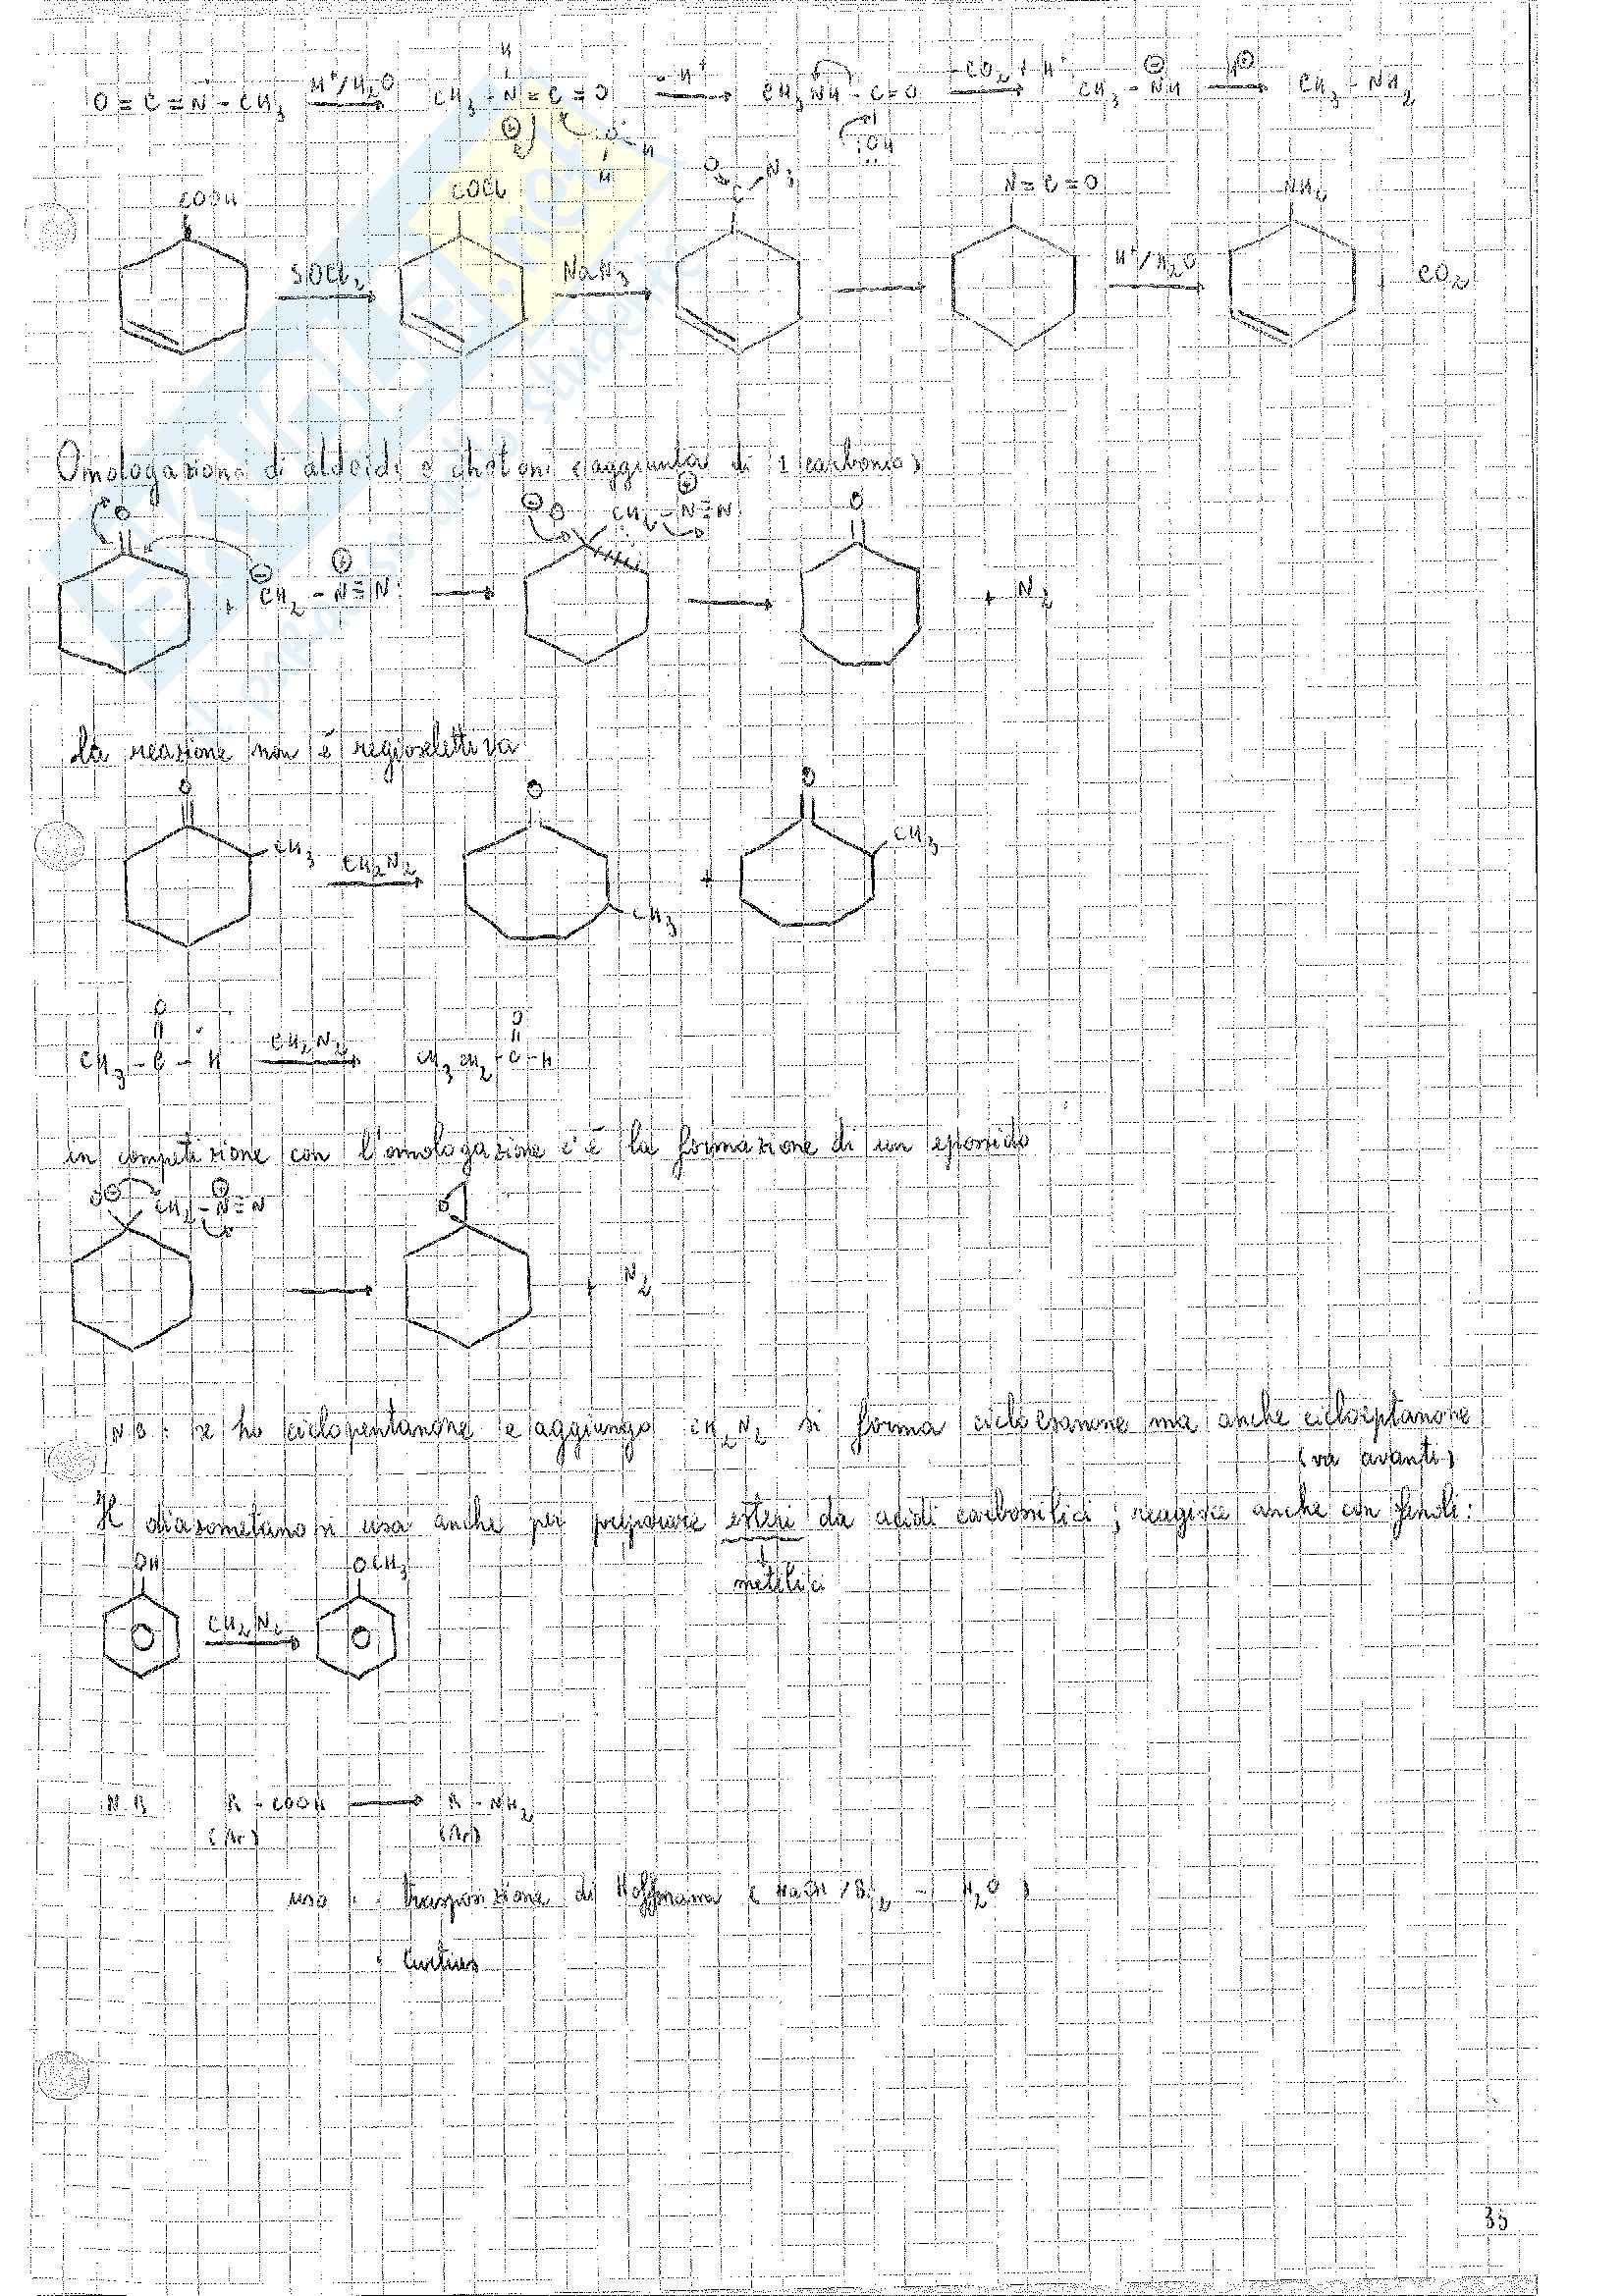 O = C = N - CH3 H+/H2O CH3 - N = C = O - H+ CH3 NH - C = O - CO2 + H+ CH3 - NH H CH3 - NH2
H
O H
H
OH
COOH COCl O C N3 N = C = O NH2
SOCl2 NaN3 H+/H2O + CO2
Omologazione di aldeidi e chetoni (aggiunta di 1 carbonio)
O O CH2 - N ≡ N O
+ CH2 - N ≡ N + N2
la reazione non è regioselettiva
O O O
CH3 CH2N2 CH3 + CH3
O O
CH3 - C - H CH2N2 CH3 CH2 - C - H
in competizione con l'omologazione c'è la formazione di un epossido
O CH2 - N ≡ N O
+ N2
NB : se ho ciclopentanone e aggiungo CH2N2 si forma cicloesanone ma anche cicloeptanone
(va avanti)
Il diazometano si usa anche per preparare esteri da acidi carbossilici ; reagisce anche con fenoli :
metilici
OH OCH3
CH2N2
N.B. R - COOH R - NH2
(Ar) (Ar)
uso : . trasposizione di Hoffmann ( NaOH / Br2 - H2O )
. Curtius
35